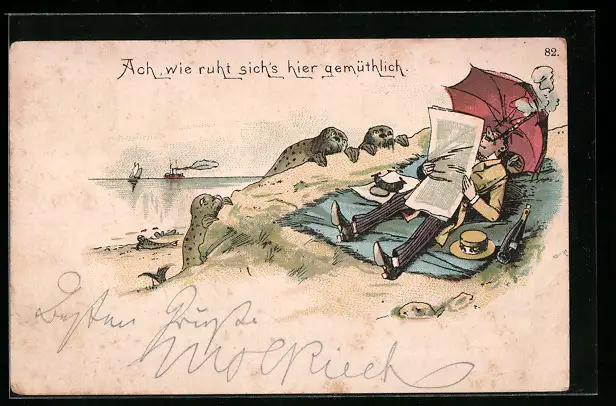 82.
Ach, wie ruht sich's hier gemüthlich.
Besten Gruß